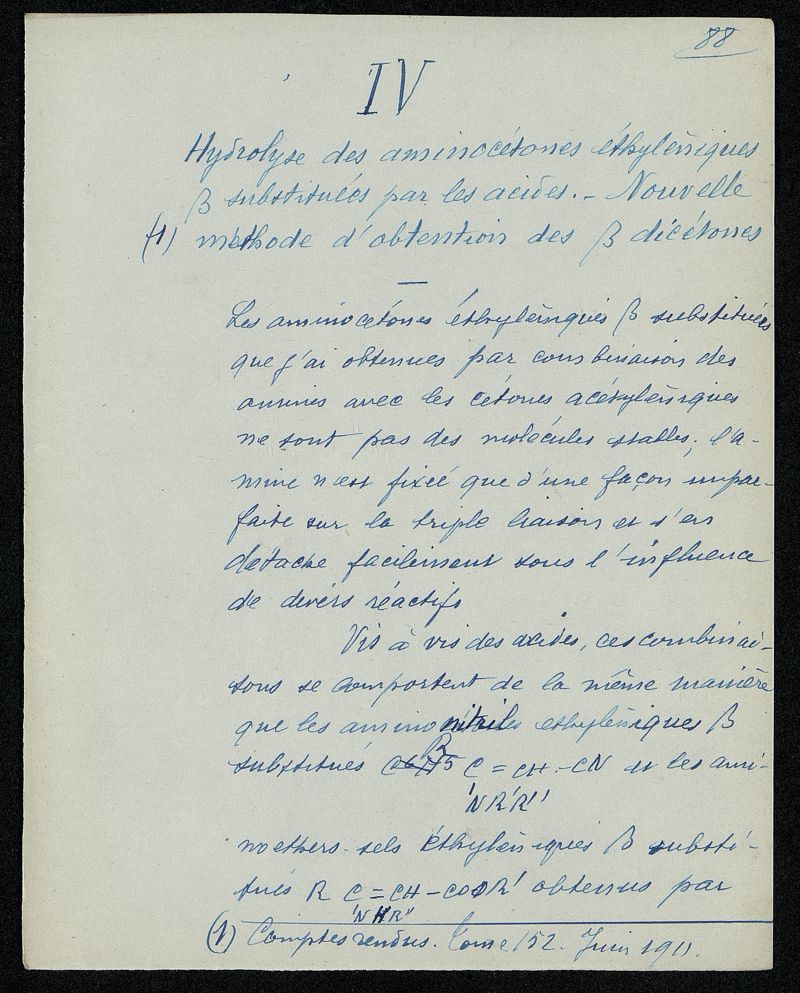 88
IV
Hydrolyse des aminocétones éthyléniques
β substitués par les acides. - Nouvelle
(1) méthode d'obtention des β dicétones
Les aminocétones éthyléniques β substituées
que j'ai obtenues par combinaison des
amines avec les cétones acétyléniques
ne sont pas des molécules stables; l'a-
mine n'est fixée que d'une façon impar-
faite sur la triple liaison et s'en
détache facilement sous l'influence
de divers réactifs
Vis à vis des acides, ces combinai-
sons se comportent de la même manière
que les aminonitriles ethyléniques β
substitués R C = CH - CN et les ami-
NR'R''
noethers-sels éthyléniques β substi-
tués R C = CH - COOR' obtenus par
NHR''
(1) Comptes rendus. Tome 152. Juin 1911.